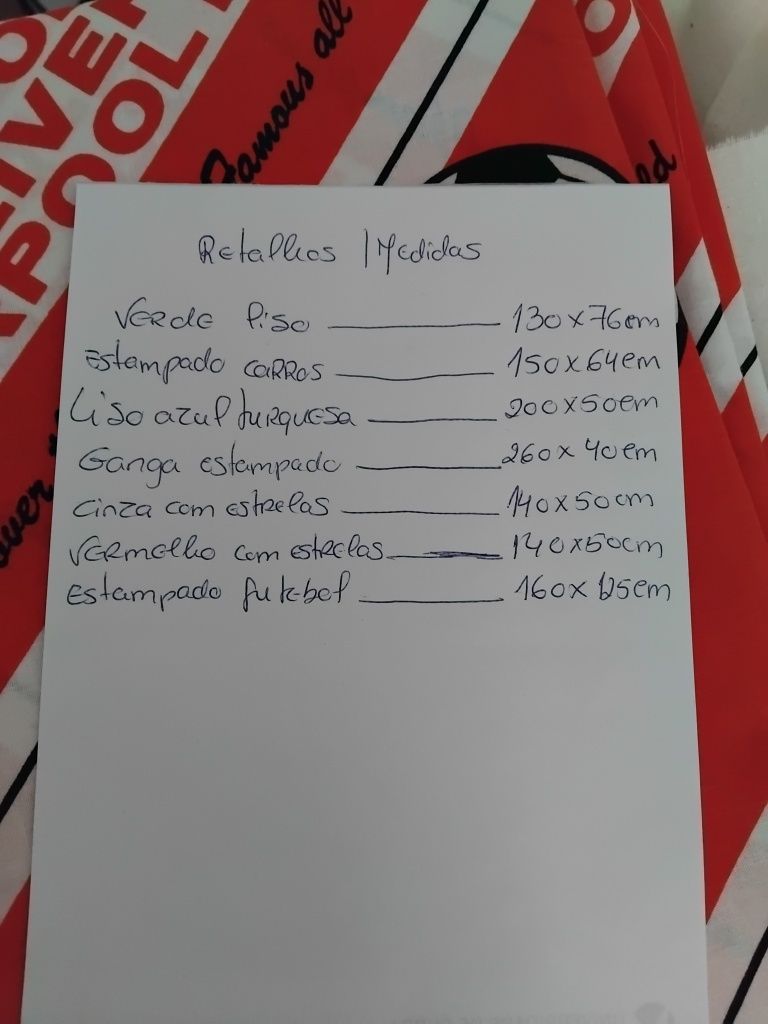 LIVER
POOL
Famous all
ld
over
Retalhos / Medidas
Verde liso 130x76cm
Estampado carros 150x64cm
Liso azul turquesa 200x50cm
Ganga estampado 260x40cm
Cinza com estrelas 140x50cm
Vermelho com estrelas 140x50cm
Estampado futebol 160x125cm